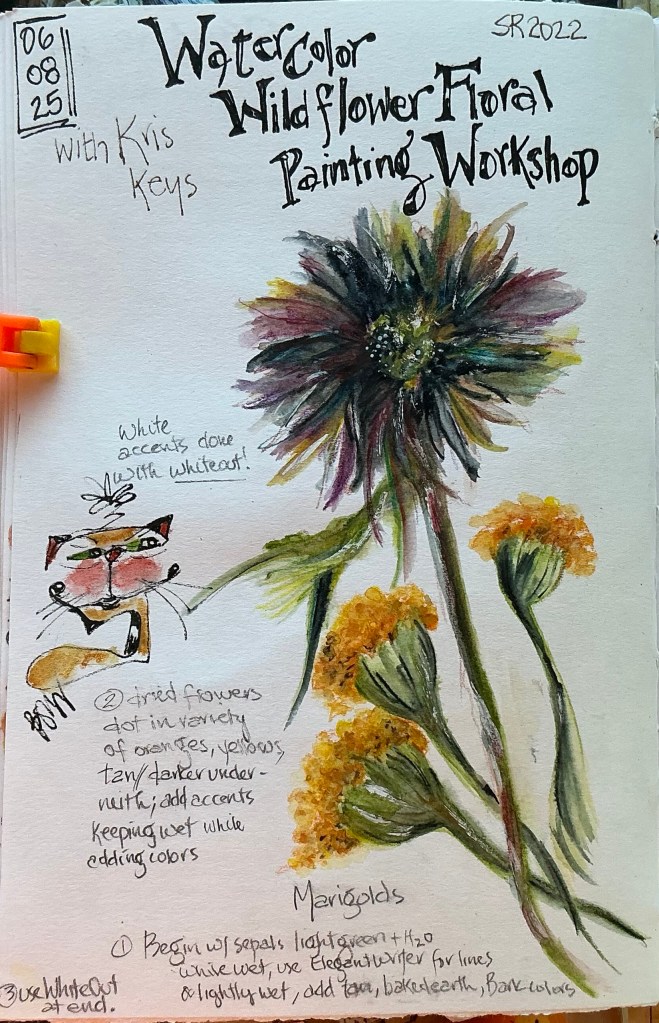 06
08
25
SR2022
WaterColor
Wildflower Floral
Painting Workshop
with Kris
Keys
White
accents done
with whiteout!
② dried flowers
dot in variety
of oranges, yellows,
tan/darker under-
neith; add accents
keeping wet while
adding colors
Marigolds
① Begin w/ sepals light green + H2O
while wet, use Elegant writer for lines
& lightly wet, add tan, baked earth, Bark colors
③ use WhiteOut
at end.